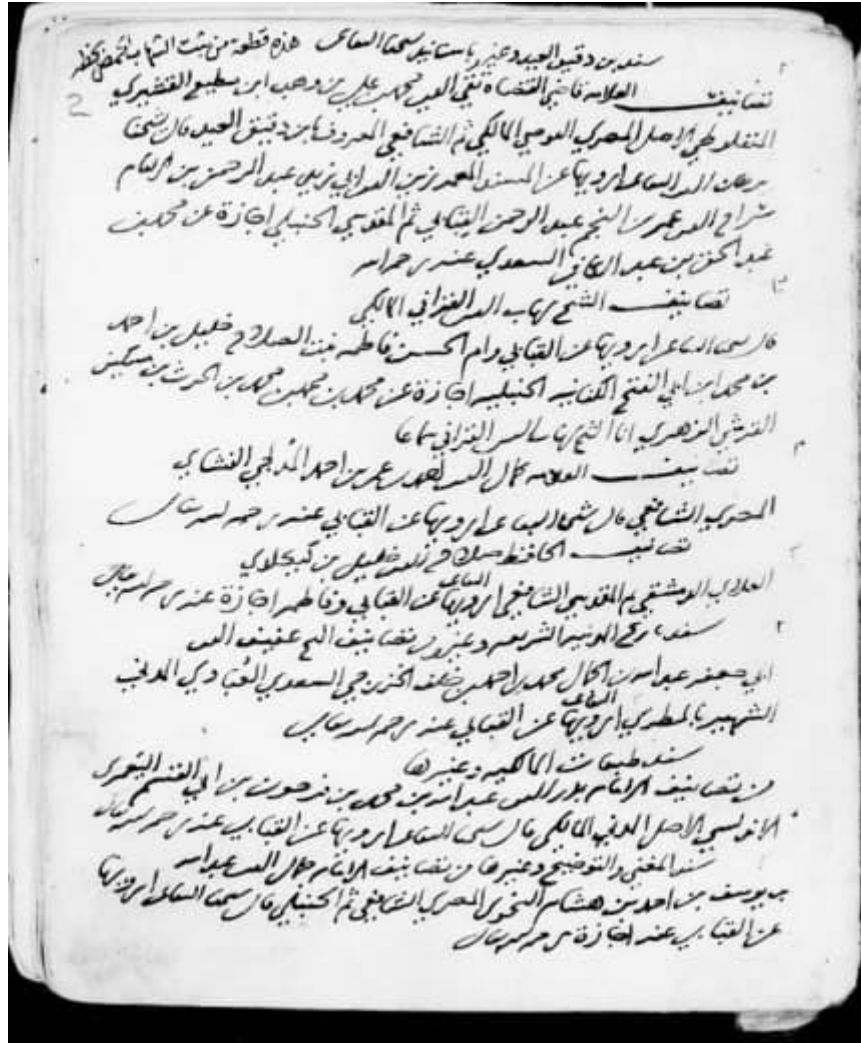 سند ابن دقيق العيد وغيره باسانيد شيخنا البقاعي هذه قطعة من ثبت الشهاب الحمصي بخطه
2
تصانيف العلامه قاضي القضاة تقي الدين محمد بن علي بن وهب ابن مطيع القشيري
المنفلوطي الاصل المصري القوصي المالكي ثم الشافعي المعروف بابن دقيق العيد قال شيخنا
برهان الدين البقاعي ارويها عن المسند المعمر زين الدين ابي زيد عبد الرحمن بن الامام
سراج الدين عمر بن النجم عبد الرحمن القبابي ثم المقدسي الحنبلي اجازة عن محمد بن
عبد الحق بن عبد الكافي السعدي عنه رحمه الله
تصانيف الشيخ شهاب الدين القرافي المالكي
قال شيخنا البقاعي ارويها عن القبابي وام الحسن فاطمه بنت الصلاح خليل بن احمد
بن محمد ابن ابي الفتح الكنانيه الحنبليه اجازة عن محمد بن محمد بن محمد بن الحرث بن مسكين
القرشي الزهري انا الشيخ شهاب الدين القرافي سماعا
تصانيف العلامه كمال الدين احمد بن عمر بن احمد المدلجي النشاي
المصري الشافعي قال شيخنا البقاعي ارويها عن القبابي عنه رحمه الله تعالى
تصانيف الحافظ صلاح الدين خليل بن كيكلدي
العلاي الدمشقي ثم المقدسي الشافعي ارويها البقاعي عن القبابي وفاطمه اجازة عنه رحمه الله تعالى
سند تاريخ المدينه الشريفه وغيره من تصانيف الشيخ عفيف الدين
ابي جعفر عبد الله بن الجمال محمد بن احمد بن خلف الخزرجي السعدي العبادي المدني
الشهير بالمطري ارويها البقاعي عن القبابي عنه رحمه الله تعالى
سند طبقات المالكيه وغيرها
من تصانيف الامام بدر الدين عبد الله بن محمد بن فرحون بن ابي القسم اليعمري
الاندلسي الاصل المدني المالكي قال شيخنا البقاعي ارويها عن القبابي عنه رحمه الله تعالى
سند المغني والتوضيح وغيرها من تصانيف الامام جمال الدين عبد الله
بن يوسف بن احمد بن هشام النحوي المصري الشافعي ثم الحنبلي قال شيخنا البقاعي ارويها
عن القبابي عنه اجازة رحمه الله تعالى